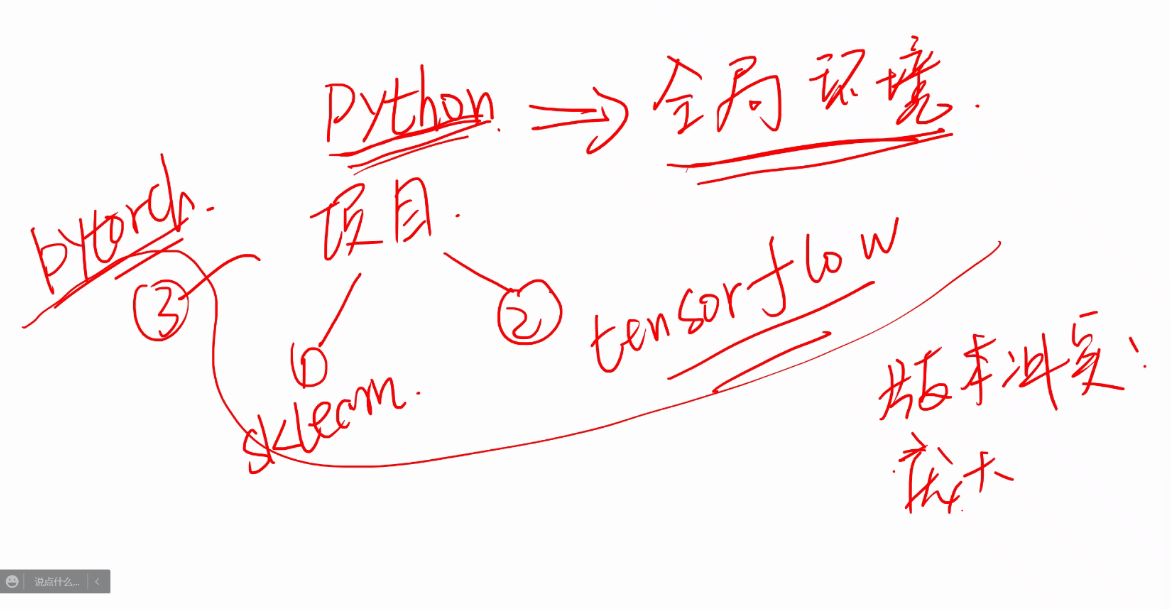 python. → 全局环境.
项目.
pytorch.
③
①
sklearn.
②
tensorflow
版本冲突:
庞大
说点什么...